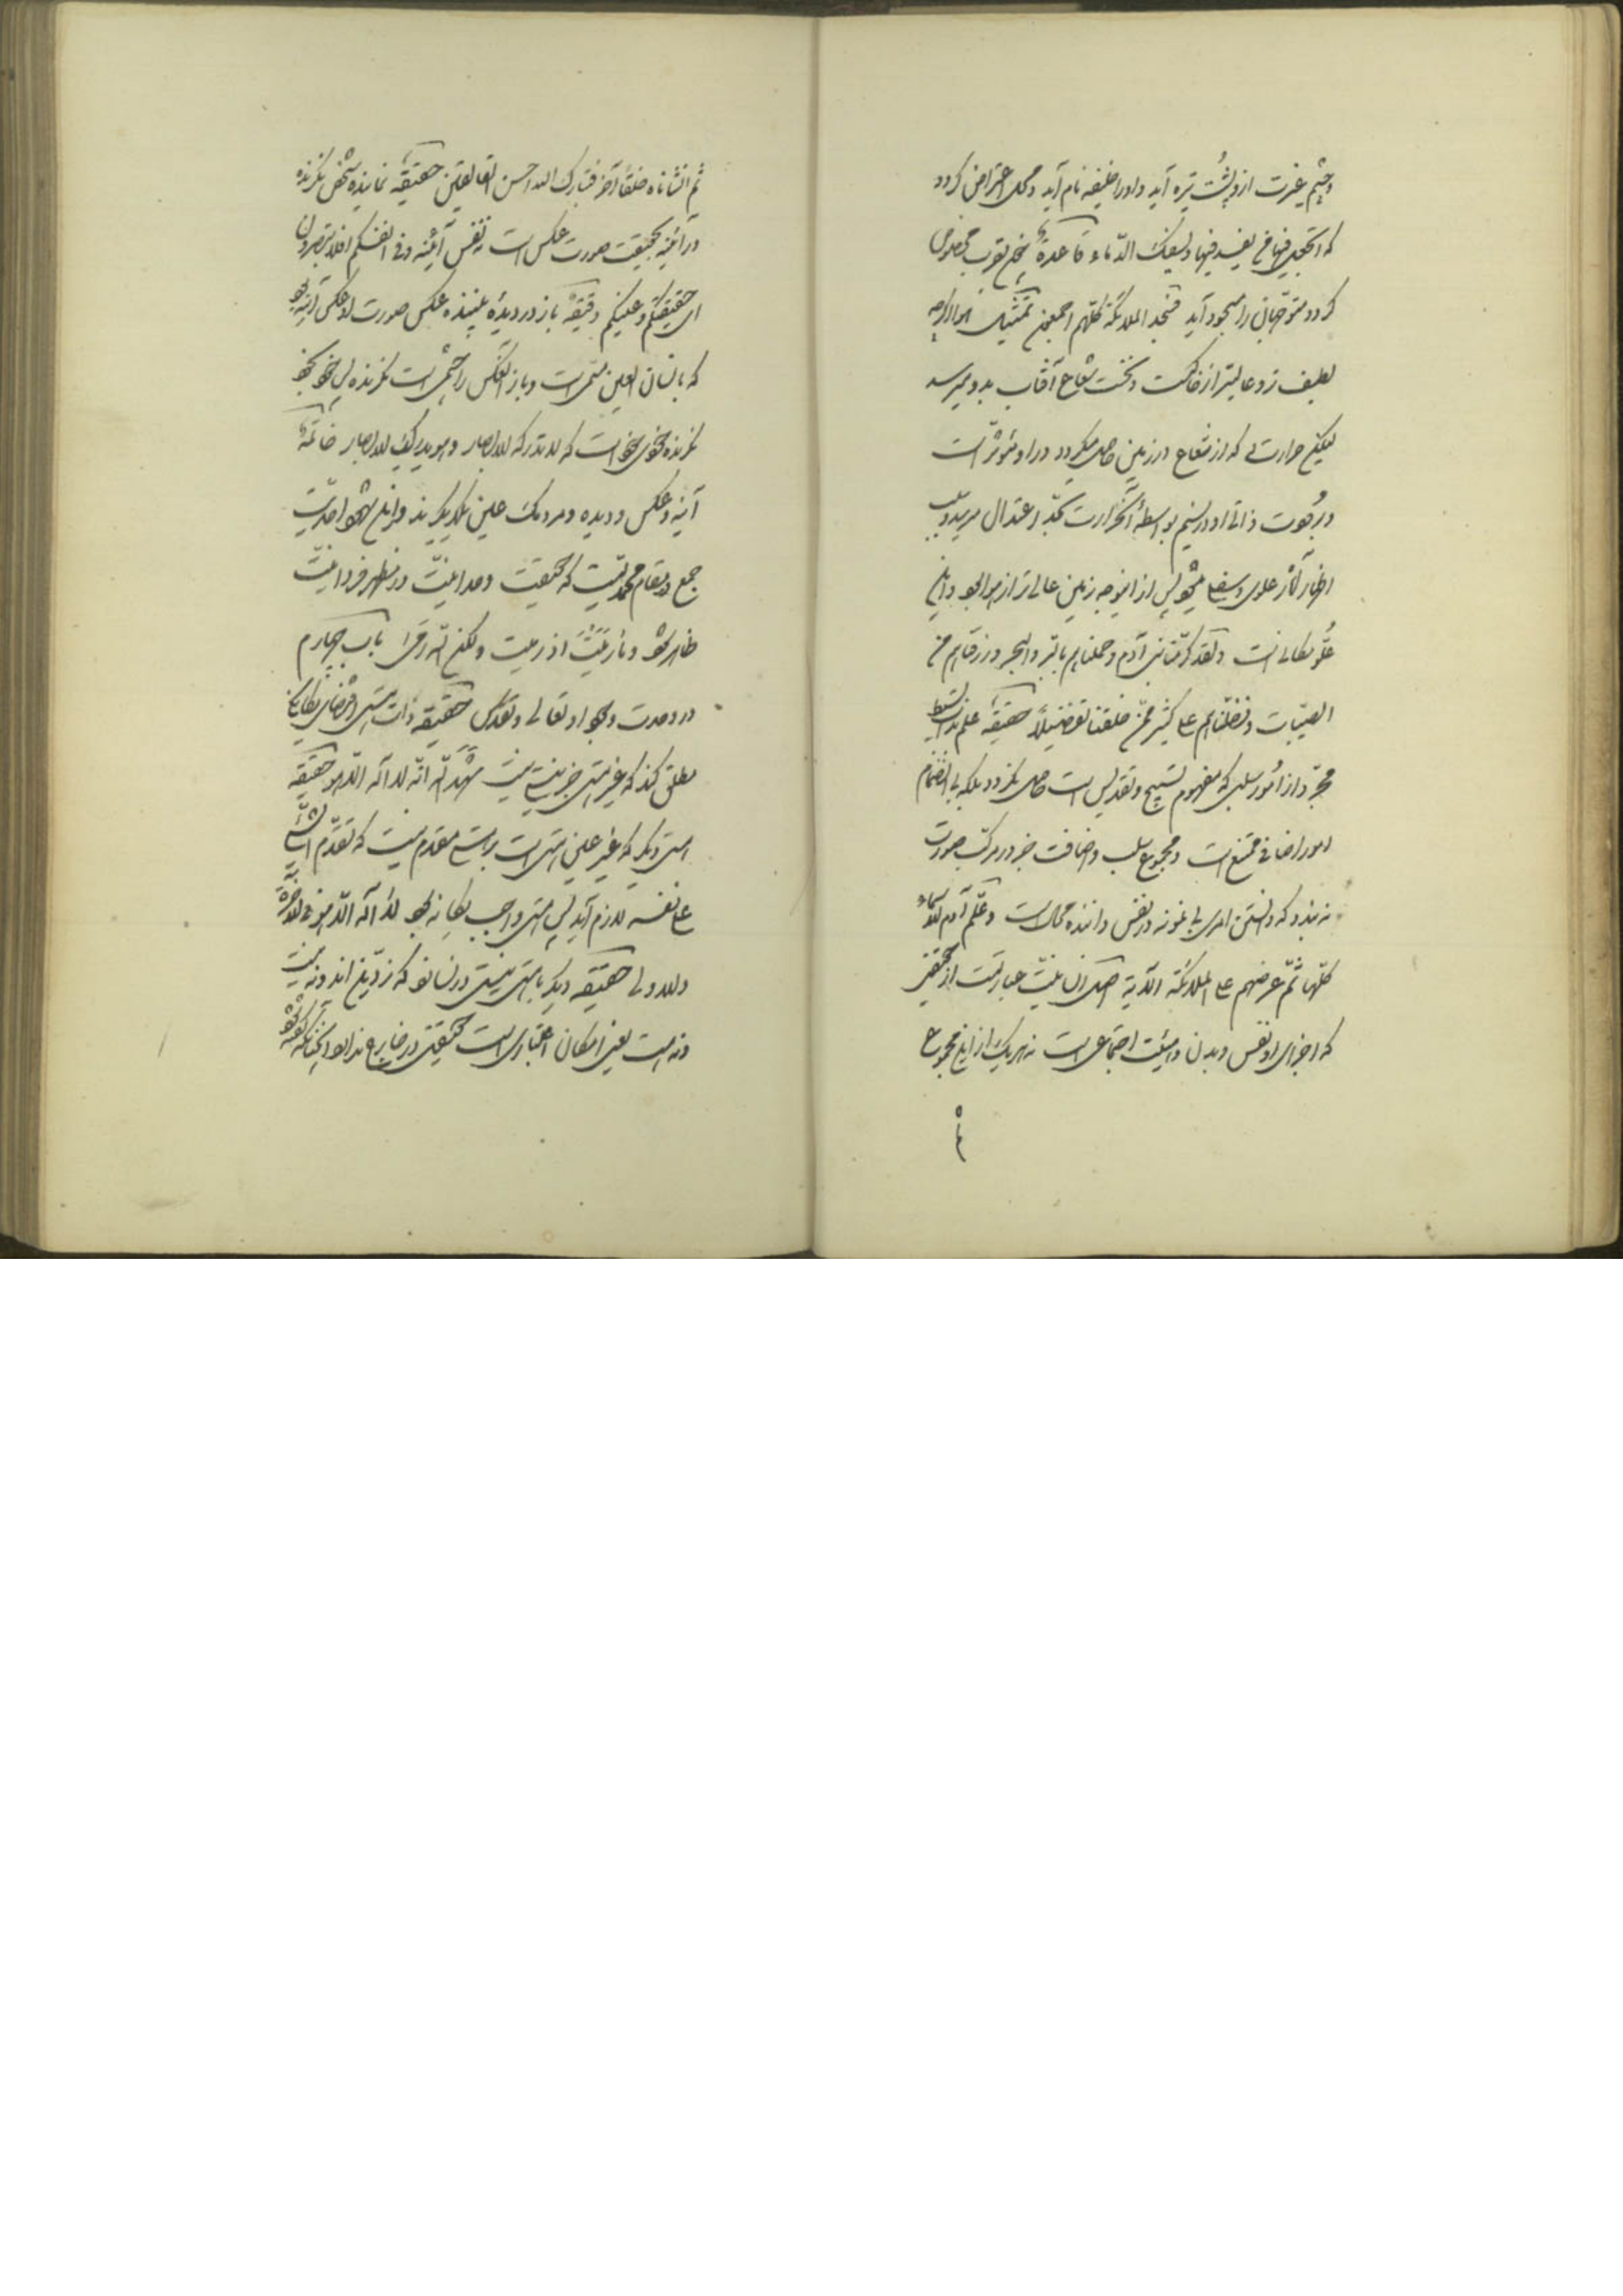 و چشم غیرت ازو پشت تیره آید و او را خلیفه نام آید و محل اعتراض گردد
که اتجعل فیها من یفسد فیها و یسفک الدماء قاعدة چون بقرب مخصوص
گردد متوجهان را مسجود آید فسجد الملائکة کلهم اجمعون تمثیل هوا اگرچه
لطیف‌تر و عالیتر از خاکست و نخست شعاع آفتاب بدو میرسد
لیکن حرارتی که از شعاع در زمین حاصل میگردد در او مؤثر است
و برودت ذاتی او در نسیم بواسطه آنحرارت بحد اعتدال میرسد و سبب
اظهار آثار علوی و سفلی میشود پس از اینوجه زمین عالی‌تر از هوا بود و این
علو مکانی است ولقد کرمنا بنی آدم و حملناهم بالبر والبحر ورزقناهم من
الطیبات وفضلناهم علی کثیر ممن خلقنا تفضیلا حقیقة علم بذات بسیط
مجرد از امور سلبی که مفهوم تسبیح و تقدیس است حاصل نگردد بلکه بی انضمام
امور اضافی ممتنع است و مجموع سلب و اضافت جز در مرکب صورت
نه بندد که دانستن امری بی نمونه در نفس داننده محال است وعلم آدم الاسماء
کلها ثم عرضهم علی الملائکة الآیة اصل انسانیت عبارتست از حقیقتی
که اجزای او نفس و بدن و هیئت اجتماعی است نه هر یک از این مجموع
ثم
ثم انشاناه خلقا آخر فتبارک الله احسن الخالقین حقیقة نماینده شخص نگرنده
در آئینه بحقیقت صورت عکس است نه نفس آئینه وفی انفسکم افلا تبصرون
ای حقیقتکم و عینکم دقیقة باز در دیده بیننده عکس صورت او عکس آینه بود
که بانسان العین مسمی است و باز آنعکس را چشمی است نگرنده پس خود بخود
نگرنده خود بخود است که لا تدرکه الابصار وهو یدرک الابصار خاتمة
آینه و عکس و دیده و مردمک عین یکدیگرند و این شهود احدیت
جمع در مقام محمدیست که حقیقت وحدانیت در مظهر فردانیت
ظاهر شود وما رمیت اذ رمیت ولکن الله رمی باب چهارم
در وحدت وجود او تعالی و تقدس حقیقة ذات هستی اقتضای یگانگی
مطلق کند که غیر هستی جز نیستی نیست شهد الله انه لا اله الا هو حقیقة
هستی دیگر که غیر عین هستی است بر هستی مقدم نیست که تقدم الشیء
علی نفسه لازم آید پس هستی واجب یگانه بود لا اله الا هو فی الآخرة
والاولی حقیقة دیگر با هستی نیستی در نسازد که نزد این اند و نه نیست
و نه هست یعنی امکان اعتباری است حقیقتی در خارج ندارد چنانکه گفته شود